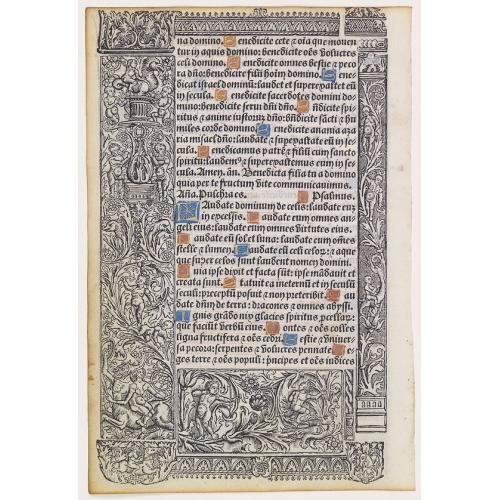 na domino: Benedicite cete ⁊ oĩa que mouen
tur in aquis domino: benedicite oẽs volucres
celi domino. Benedicite omnes bestie ⁊ peco
ra dño: benedicite filii hoĩm domino. Bene
dicat israel dominũ: laudet et superexaltet eũ
in secula. Benedicite sacerdotes domini do-
mino: benedicite serui dñi dño. Bñdicite spi
ritus ⁊ anime iustorũ dño: bñdicite sãcti ⁊ hu
miles corde domino. Benedicite anania aza
ria misael dño: laudate ⁊ superexaltate eũ in
secula. Benedicamus patrẽ ⁊ filiũ cum sancto
spiritu: laudemꝰ ⁊ superexaltemus eum in se
cula. Amen. ãn. Benedicta filia tu a domino
quia per te fructum vite communicauimus.
Aña. Pulchra es. Psalmus.
Laudate dominum de celis: laudate eum
in excelsis. Laudate eum omnes an-
geli eius: laudate eum omnes virtutes eius.
Laudate eũ sol et luna: laudate eum oẽs
stelle ⁊ lumen. Laudate eũ celi celorꝝ: ⁊ aque
que super celos sunt laudent nomen domini.
Quia ipse dixit et facta sũt: ipse mãdauit et
creata sunt. Statuit ea in eternũ et in seculũ
seculi: preceptũ posuit ⁊ non preteribit. Lau
date dñm de terra: dracones ⁊ omnes abyssi.
Ignis grãdo nix glacies spiritus ꝓcellarꝝ:
que faciũt verbũ eius. Montes ⁊ oẽs colles
ligna fructifera ⁊ oẽs cedri. Bestie ⁊ vniuer
sa pecora: serpentes ⁊ volucres pennate. Re
ges terre ⁊ oẽs populi: principes et oẽs iudices